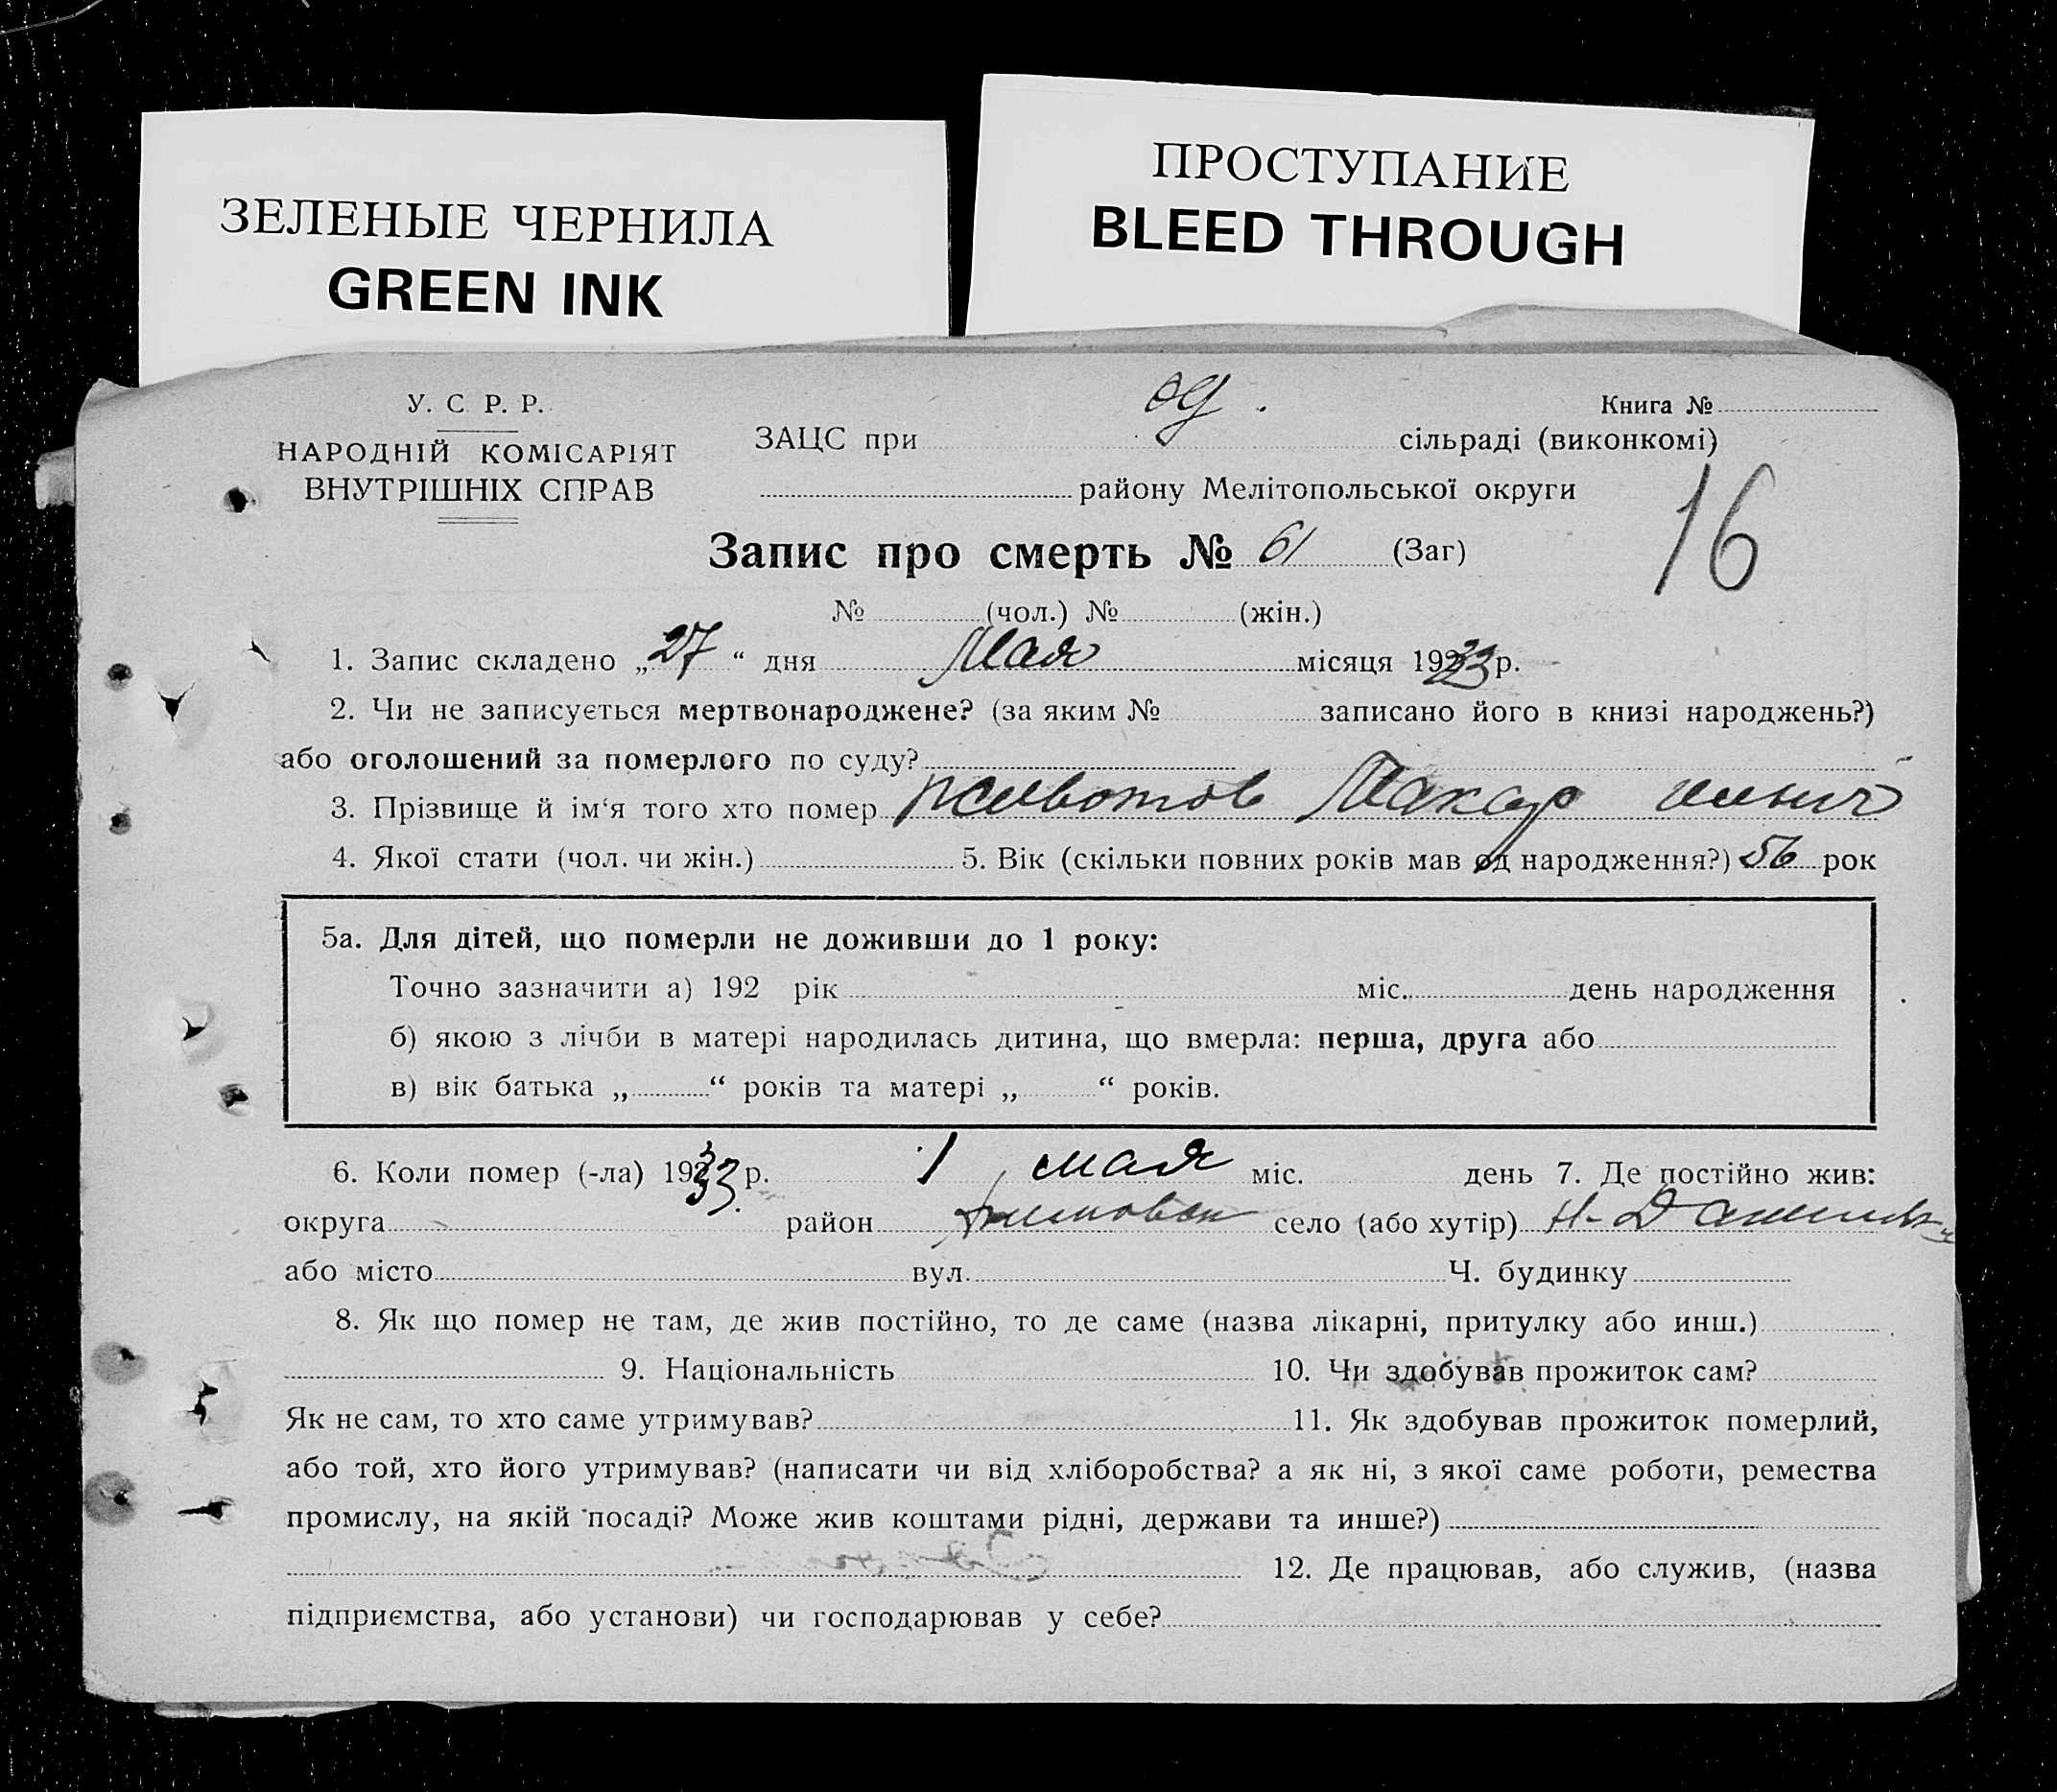 ЗЕЛЕНЫЕ ЧЕРНИЛА
GREEN INK
ПРОСТУПАНИЕ
BLEED THROUGH
У. С Р. Р.
НАРОДНІЙ КОМІСАРІЯТ
ВНУТРІШНІХ СПРАВ
Книга №
ЗАЦС при сільраді (виконкомі)
району Мелітопольської округи
16
Запис про смерть № 61 (Заг)
№ (чол.) № (жін.)
1. Запис складено „27“ дня Мая місяця 1933 р.
2. Чи не записується мертвонароджене? (за яким № записано його в книзі народжень?)
або оголошений за померлого по суду?
3. Прізвище й ім‘я того хто помер Макар
4. Якої стати (чол. чи жін.) 5. Вік (скільки повних років мав од народження?) 56 рок
5а. Для дітей, що померли не доживши до 1 року:
Точно зазначити а) 192 рік міс. день народження
б) якою з лічби в матері народилась дитина, що вмерла: перша, друга або
в) вік батька „ “ років та матері „ “ років.
6. Коли помер (-ла) 1933 р. 1 мая міс. день 7. Де постійно жив:
округа район село (або хутір)
або місто вул. Ч. будинку
8. Як що помер не там, де жив постійно, то де саме (назва лікарні, притулку або инш.)
9. Національність 10. Чи здобував прожиток сам?
Як не сам, то хто саме утримував? 11. Як здобував прожиток померлий,
або той, хто його утримував? (написати чи від хліборобства? а як ні, з якої саме роботи, ремества
промислу, на якій посаді? Може жив коштами рідні, держави та инше?)
12. Де працював, або служив, (назва
підприємства, або установи) чи господарював у себе?